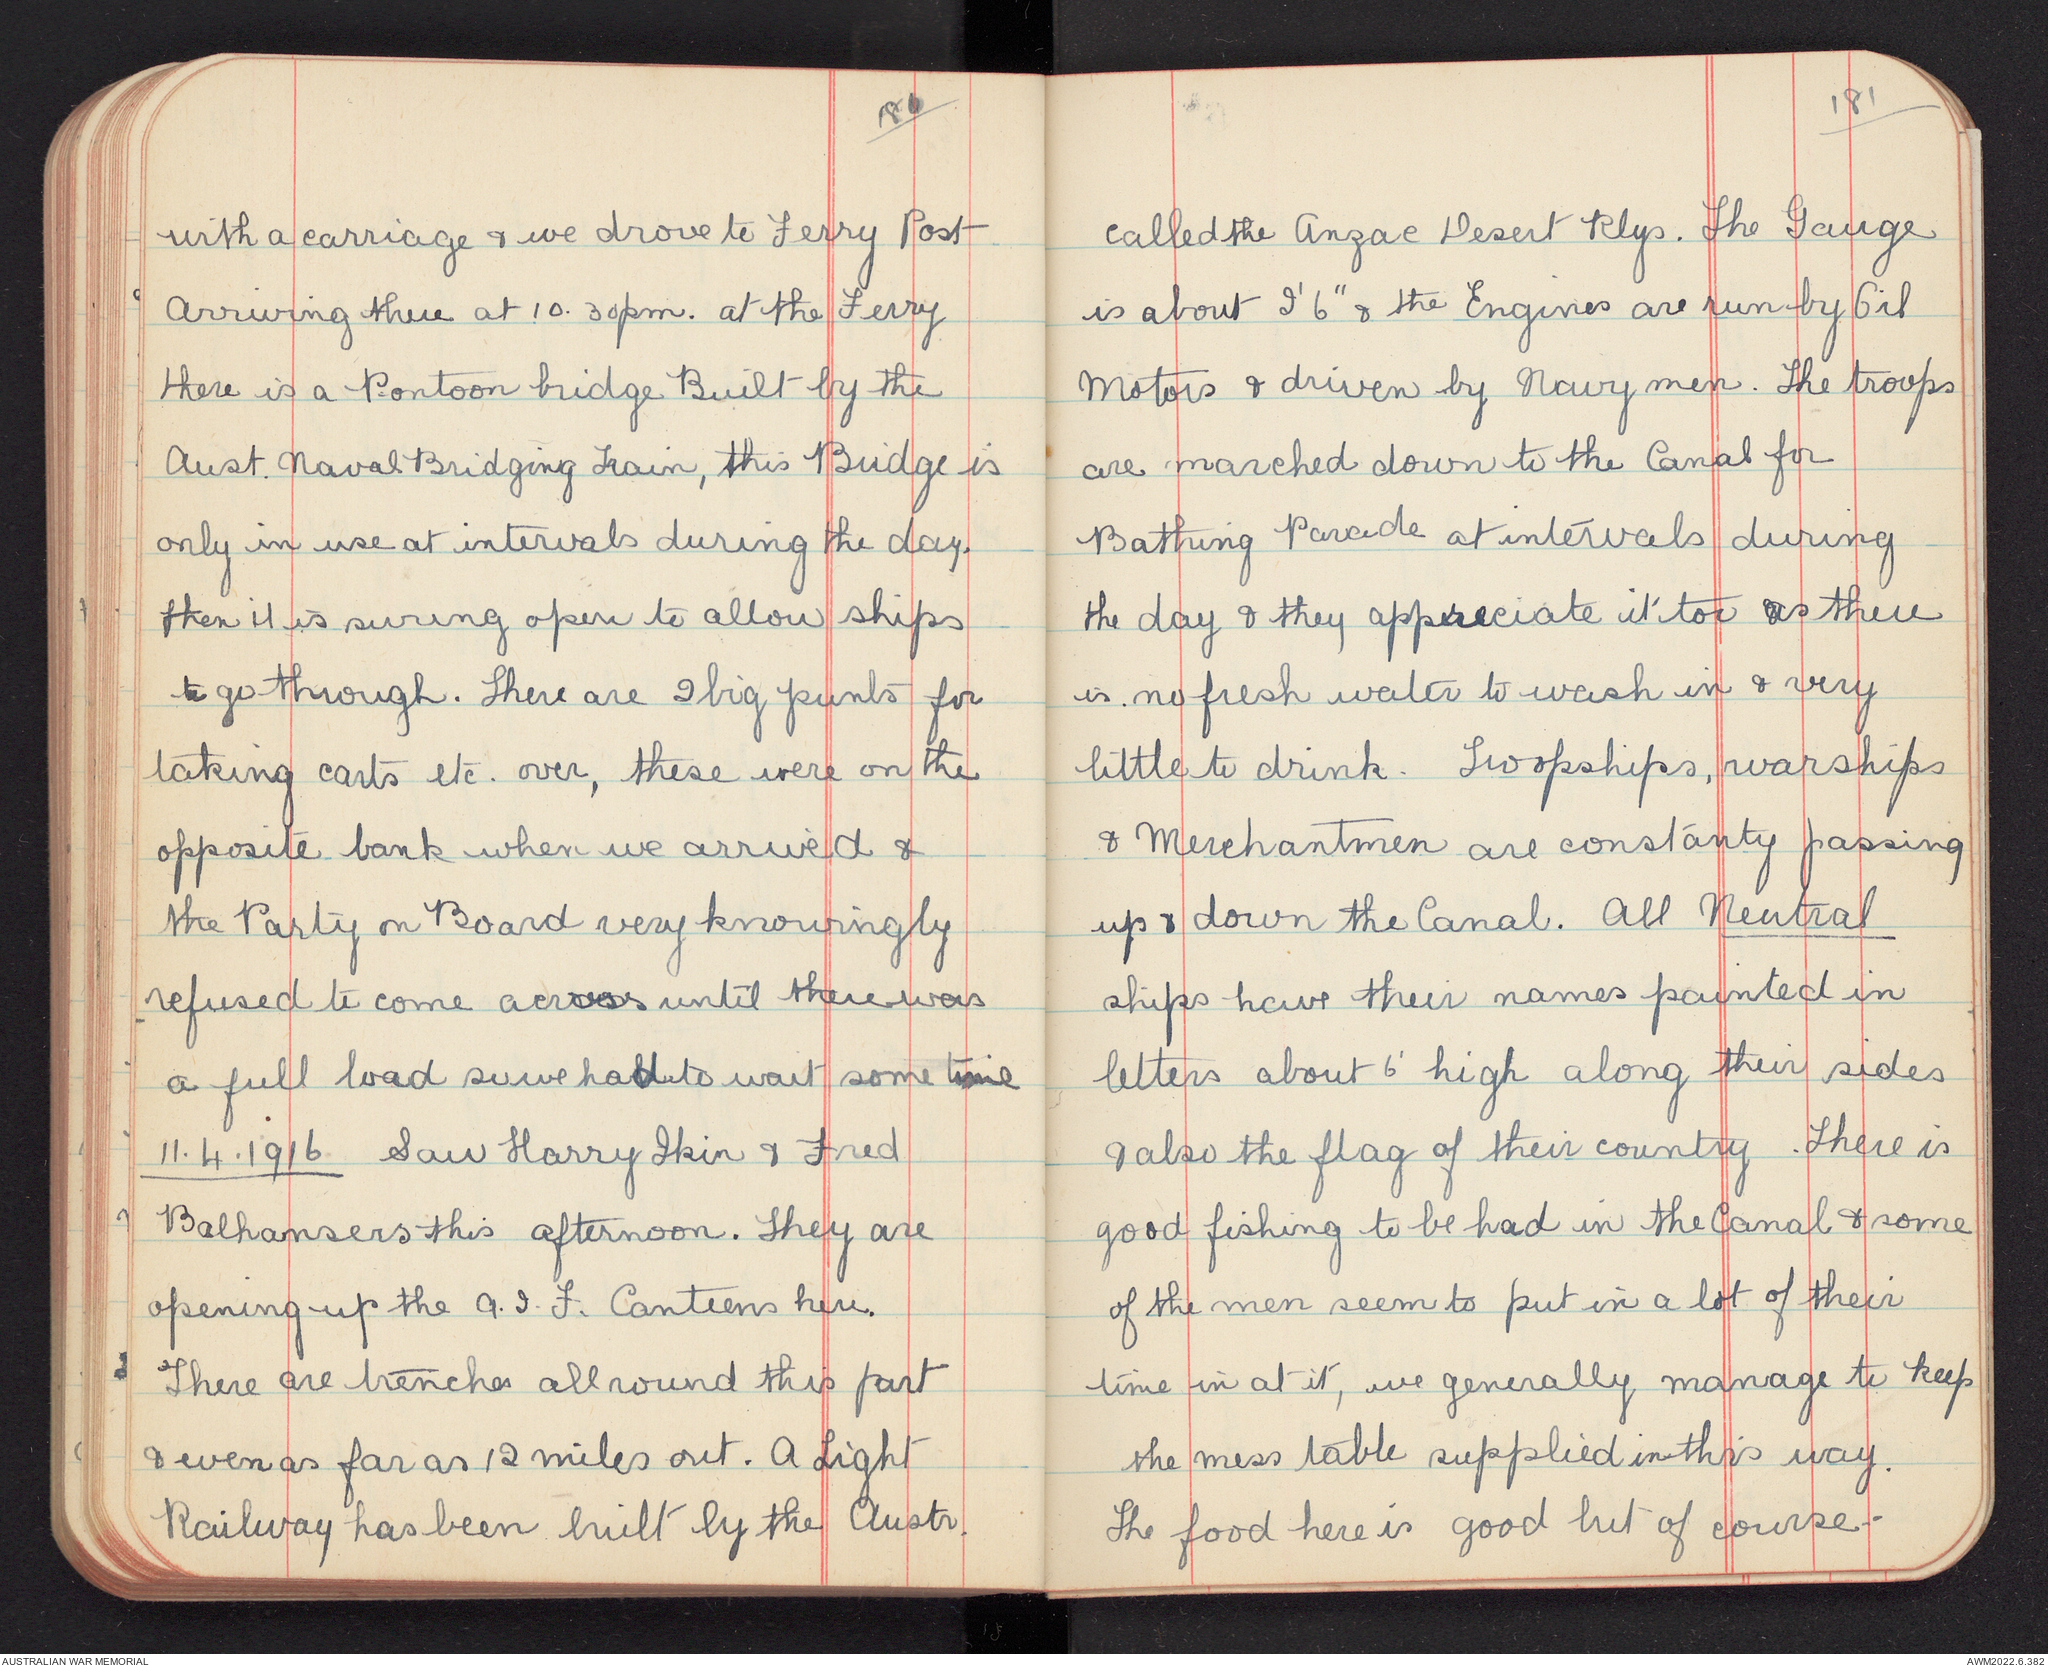 180
with a carriage & we drove to Ferry Post
Arriving there at 10.30pm. at the Ferry
there is a Pontoon bridge Built by the
Aust. Naval Bridging Train, this Bridge is
only in use at intervals during the day,
then it is swing open to allow ships
to go through. There are 2 big punts for
taking carts etc. over, these were on the
opposite bank when we arrived &
the Party on Board very knowingly
refused to come across until there was
a full load so we had to wait some time
11.4.1916 Saw Harry Ikin & Fred
Balhansers this afternoon. They are
opening up the A.I.F. Canteens here.
There are trenches all round this part
& even as far as 12 miles out. A Light
Railway has been built by the Austr.
181
called the Anzac Desert Rlys. The Gauge
is about 2'6" & the Engines are run by Oil
Motors & driven by Navy men. The troops
are marched down to the Canal for
Bathing Parade at intervals during
the day & they appreciate it too as there
is no fresh water to wash in & very
little to drink. Troopships, warships
& Merchantmen are constanty passing
up & down the Canal. All Neutral
ships have their names painted in
letters about 6' high along their sides
& also the flag of their country. There is
good fishing to be had in the Canal & some
of the men seem to put in a lot of their
time in at it, we generally manage to keep
the mess table supplied in this way.
The food here is good but of course -
AUSTRALIAN WAR MEMORIAL
AWM2022.6.382